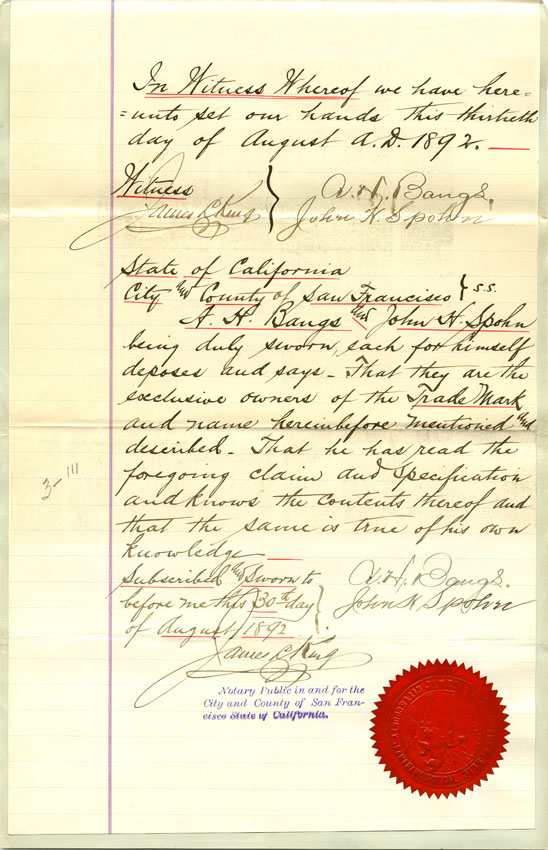 In Witness Whereof we have here=
=unto set our hands this thirtieth
day of August A.D. 1892.
Witness
James L King
A. H. Bangs.
John H. Spohn
State of California
City and County of San Francisco } s.s.
A. H. Bangs and John H. Spohn
being duly sworn, each for himself
deposes and says - That they are the
exclusive owners of the Trade Mark
and name hereinbefore mentioned and
described - That he has read the
foregoing claim and specification
and knows the contents thereof and
that the same is true of his own
knowledge
Subscribed and Sworn to
before me this 30th day
of August 1892.
A. H. Bangs.
John H. Spohn
James L King
Notary Public in and for the
City and County of San Fran-
cisco State of California.
3-111